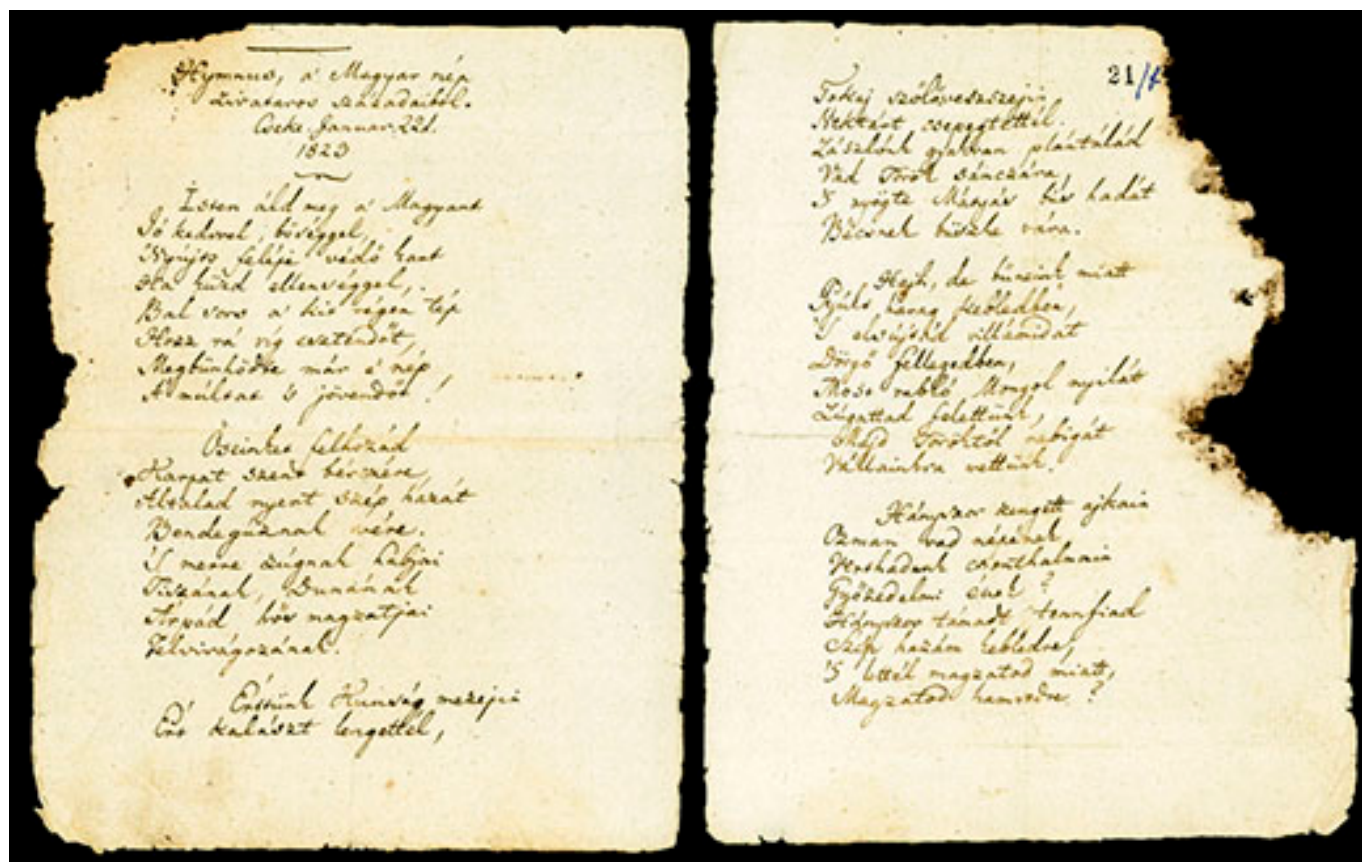 Hymnus, a' Magyar nép
zivataros századaiból.
Cseke Januar. 22d.
1823
Isten áld meg a' Magyart
Jó kedvvel, bőséggel,
Nyújts feléje védő kart
Ha küzd ellenséggel,
Bal sors a' kit régen tép
Hozz rá víg esztendőt,
Megbűnhődte már e' nép
A' múltat 's jövendőt!
Őseinket felhozád
Kárpát szent bérczére
Általad nyert szép hazát
Bendegúznak vére.
'S merre zúgnak habjai
Tiszának, Dunának
Árpád hős magzatjai
Felvirágozának.
Értünk Kunság mezején
Ért kalászt lengettél,
21/1
Tokaj szőlővesszején
Nektárt csepegtettél.
Zászlónk gyakran plántálád
Vad Török sánczára,
'S nyögte Mátyás bús hadát
Bécsnek büszke vára.
Hajh, de bűneink miatt
Gyúlt harag kebledben,
'S elsújtád villámidat
Dörgő fellegedben,
Most rabló Mongol nyilát
Zúgattad felettünk,
Majd Töröktől rabigát
Vállainkra vettünk.
Hányszor zengett ajkain
Ozman vad népének
Vert hadunk csonthalmain
Győzedelmi ének?
Hányszor támadt tenn fiad
Szép hazám kebledre,
'S lettél magzatod miatt,
Magzatod hamvedre?